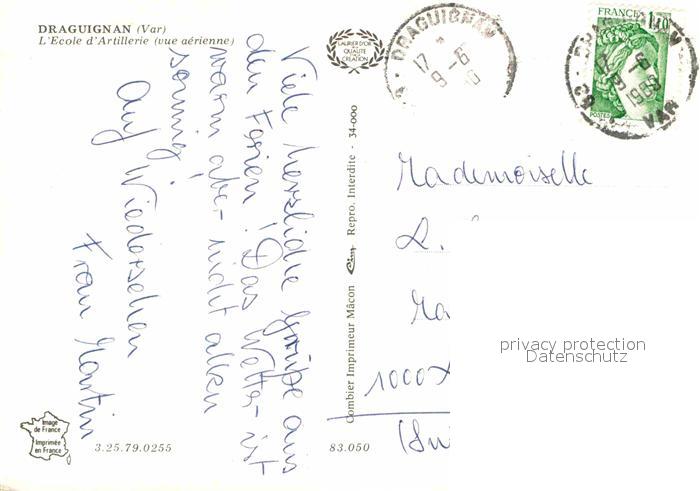 DRAGUIGNAN (Var)
L'Ecole d'Artillerie (vue aérienne)
Viele herzliche Grüße aus
den Ferien! Das Wetter ist
warm aber nicht allzu
sonnig.
Auf Wiedersehen
Frau Martin
Image
de France
Imprimée
en France
3.25.79.0255
83.050
LAURIER D'OR
DE LA
QUALITÉ
FRANÇAISE
CREATION
Combier Imprimeur Mâcon Cim Repro. Interdite - 34-000
DRAGUIGNAN
17 *
9-6
FRANCE 1,10
POSTES
9-6
1980
83 VAR
Mademoiselle
R.
Ma
1000
(Sui
privacy protection
Datenschutz